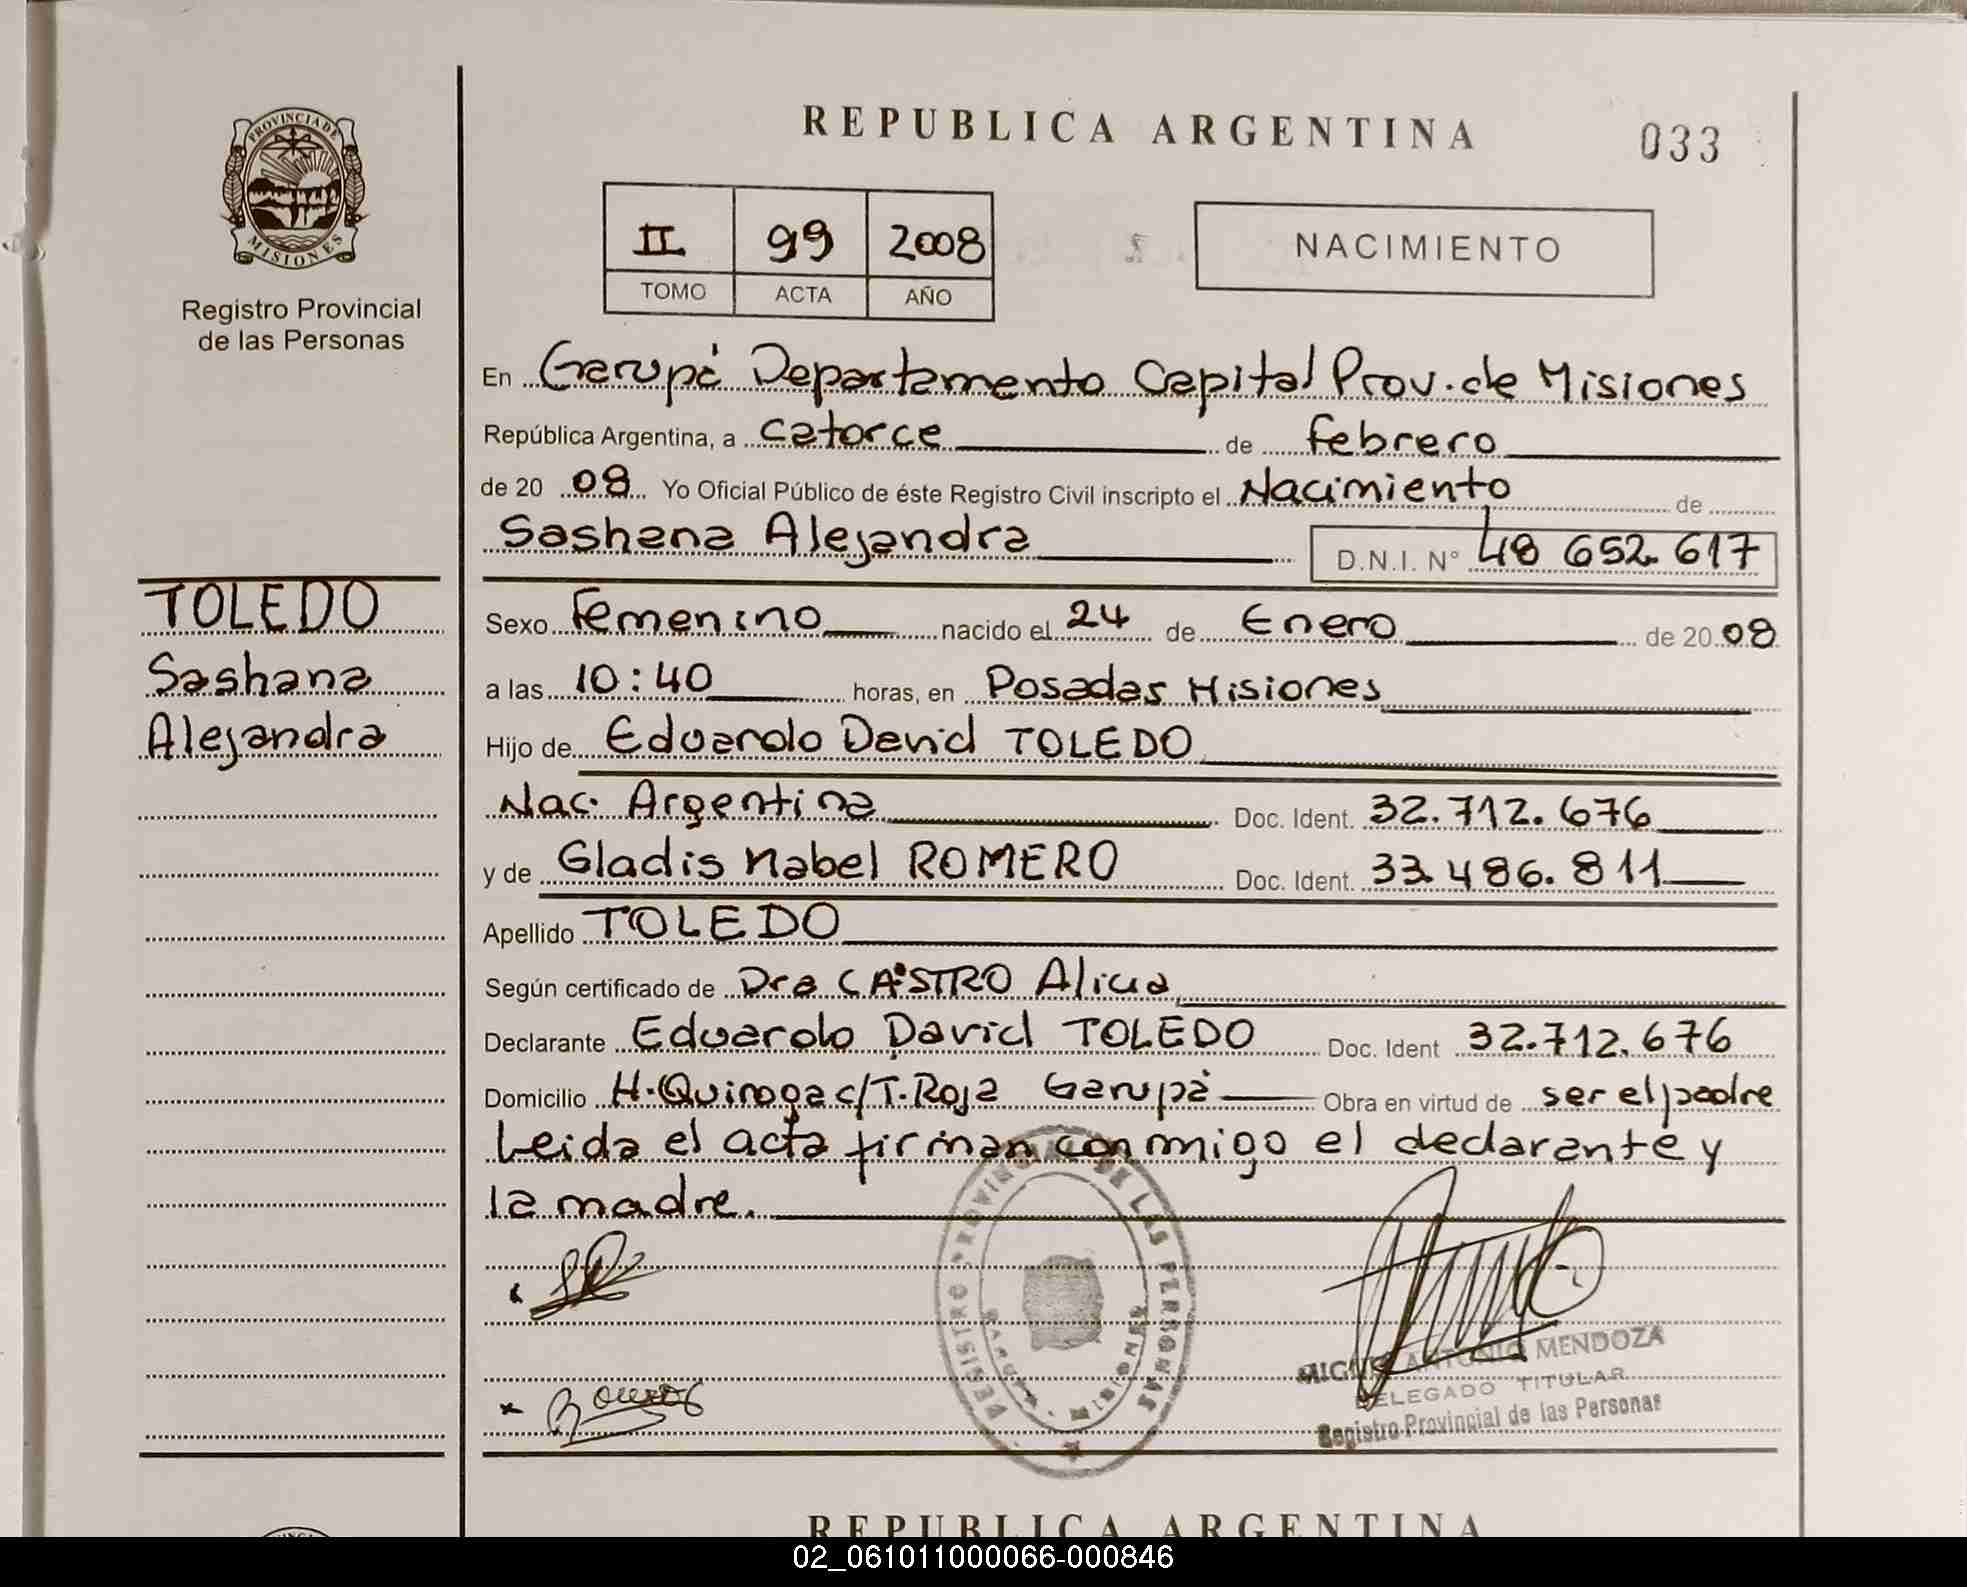 REPUBLICA ARGENTINA
033
PROVINCIA DE
MISIONES
Registro Provincial
de las Personas
II 99 2008
TOMO ACTA AÑO
NACIMIENTO
En Garupá Departamento Capital Prov. de Misiones
República Argentina, a catorce de febrero
de 20 08 Yo Oficial Público de éste Registro Civil inscripto el Nacimiento de
Sashana Alejandra D.N.I. N° 48 652.617
TOLEDO
Sashana
Alejandra
Sexo Femenino nacido el 24 de Enero de 20 08
a las 10:40 horas, en Posadas Misiones
Hijo de Eduardo David TOLEDO
Nac. Argentina Doc. Ident. 32.712.676
y de Gladis Mabel ROMERO Doc. Ident. 33.486.811
Apellido TOLEDO
Según certificado de Dra CASTRO Alicia
Declarante Eduardo David TOLEDO Doc. Ident 32.712.676
Domicilio H. Quiroga c/T. Roja Garupá Obra en virtud de ser el padre
Leida el acta firman conmigo el declarante y
la madre.
REGISTRO PROVINCIAL DE LAS PERSONAS
GARUPA MISIONES
MIGUEL ANTONIO MENDOZA
DELEGADO TITULAR
Registro Provincial de las Personas
REPUBLICA ARGENTINA
02_061011000066-000846